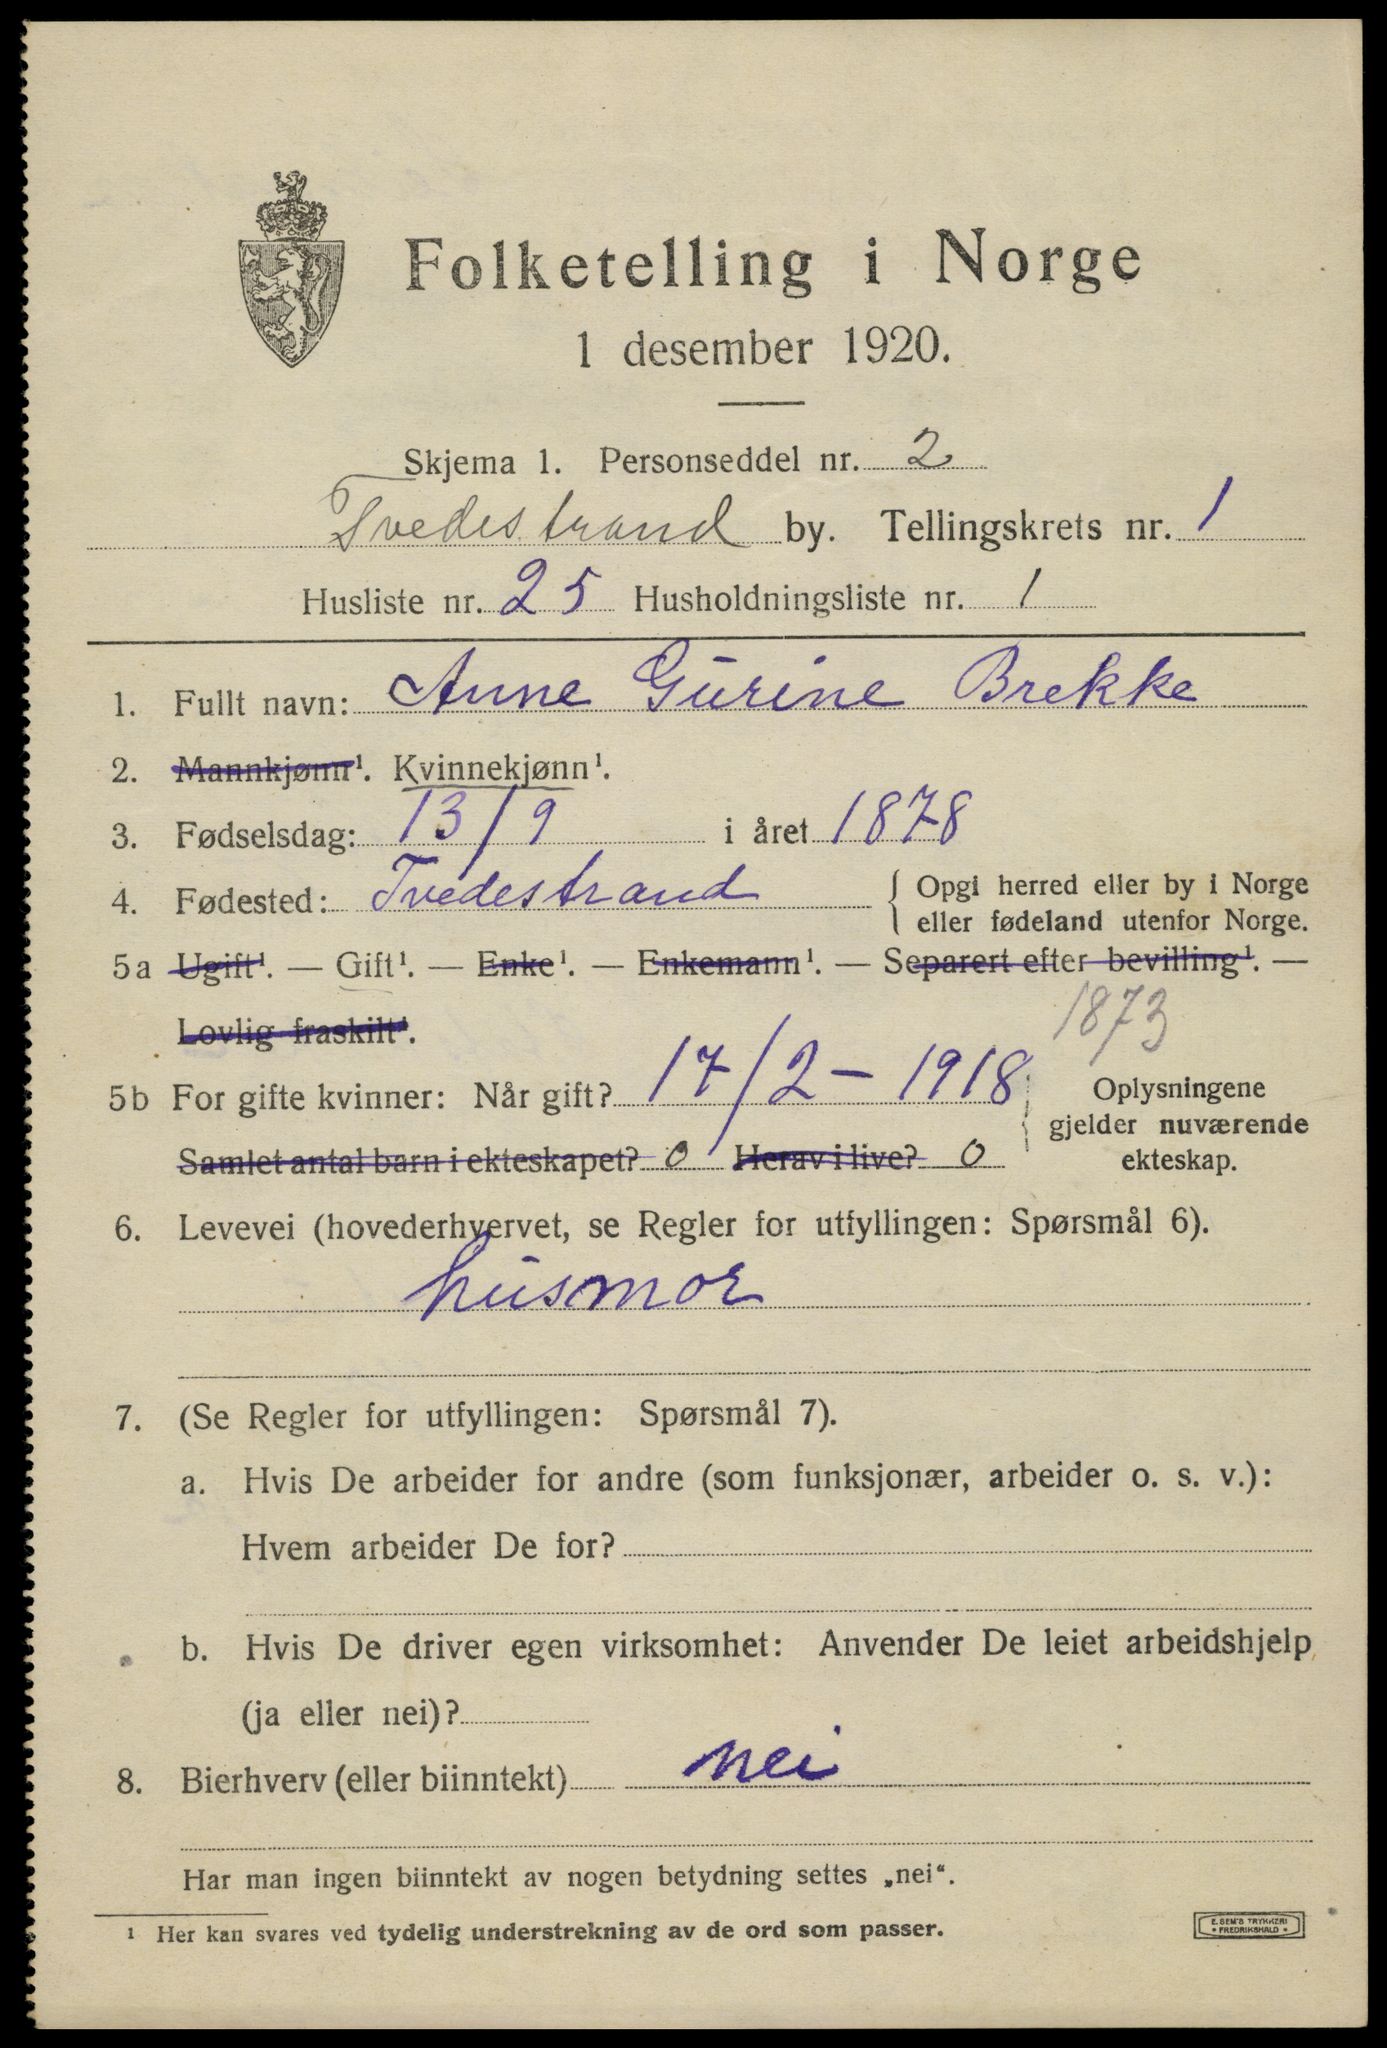 Folketelling i Norge
1 desember 1920.
Skjema 1. Personseddel nr. 2
Tvedestrand by. Tellingskrets nr. 1
Husliste nr. 25 Husholdningsliste nr. 1
1. Fullt navn: Anne Gurine Brekke
2. Mannkjønn¹. Kvinnekjønn¹.
3. Fødselsdag: 13/9 i året 1878
4. Fødested: Tvedestrand { Opgi herred eller by i Norge
eller fødeland utenfor Norge.
5a Ugift¹. — Gift¹. — Enke¹. — Enkemann¹. — Separert efter bevilling¹. —
Lovlig fraskilt¹.
1873
5b For gifte kvinner: Når gift? 17/2 - 1918
Samlet antal barn i ekteskapet? 0 Herav i live? 0
Oplysningene
gjelder nuværende
ekteskap.
6. Levevei (hovederhvervet, se Regler for utfyllingen: Spørsmål 6).
husmor
7. (Se Regler for utfyllingen: Spørsmål 7).
a. Hvis De arbeider for andre (som funksjonær, arbeider o. s. v.):
Hvem arbeider De for?
b. Hvis De driver egen virksomhet: Anvender De leiet arbeidshjelp
(ja eller nei)?
8. Bierhverv (eller biinntekt) nei
Har man ingen biinntekt av nogen betydning settes „nei“.
¹ Her kan svares ved tydelig understrekning av de ord som passer.
E. SEM'S TRYKKERI
• FREDRIKSHALD •